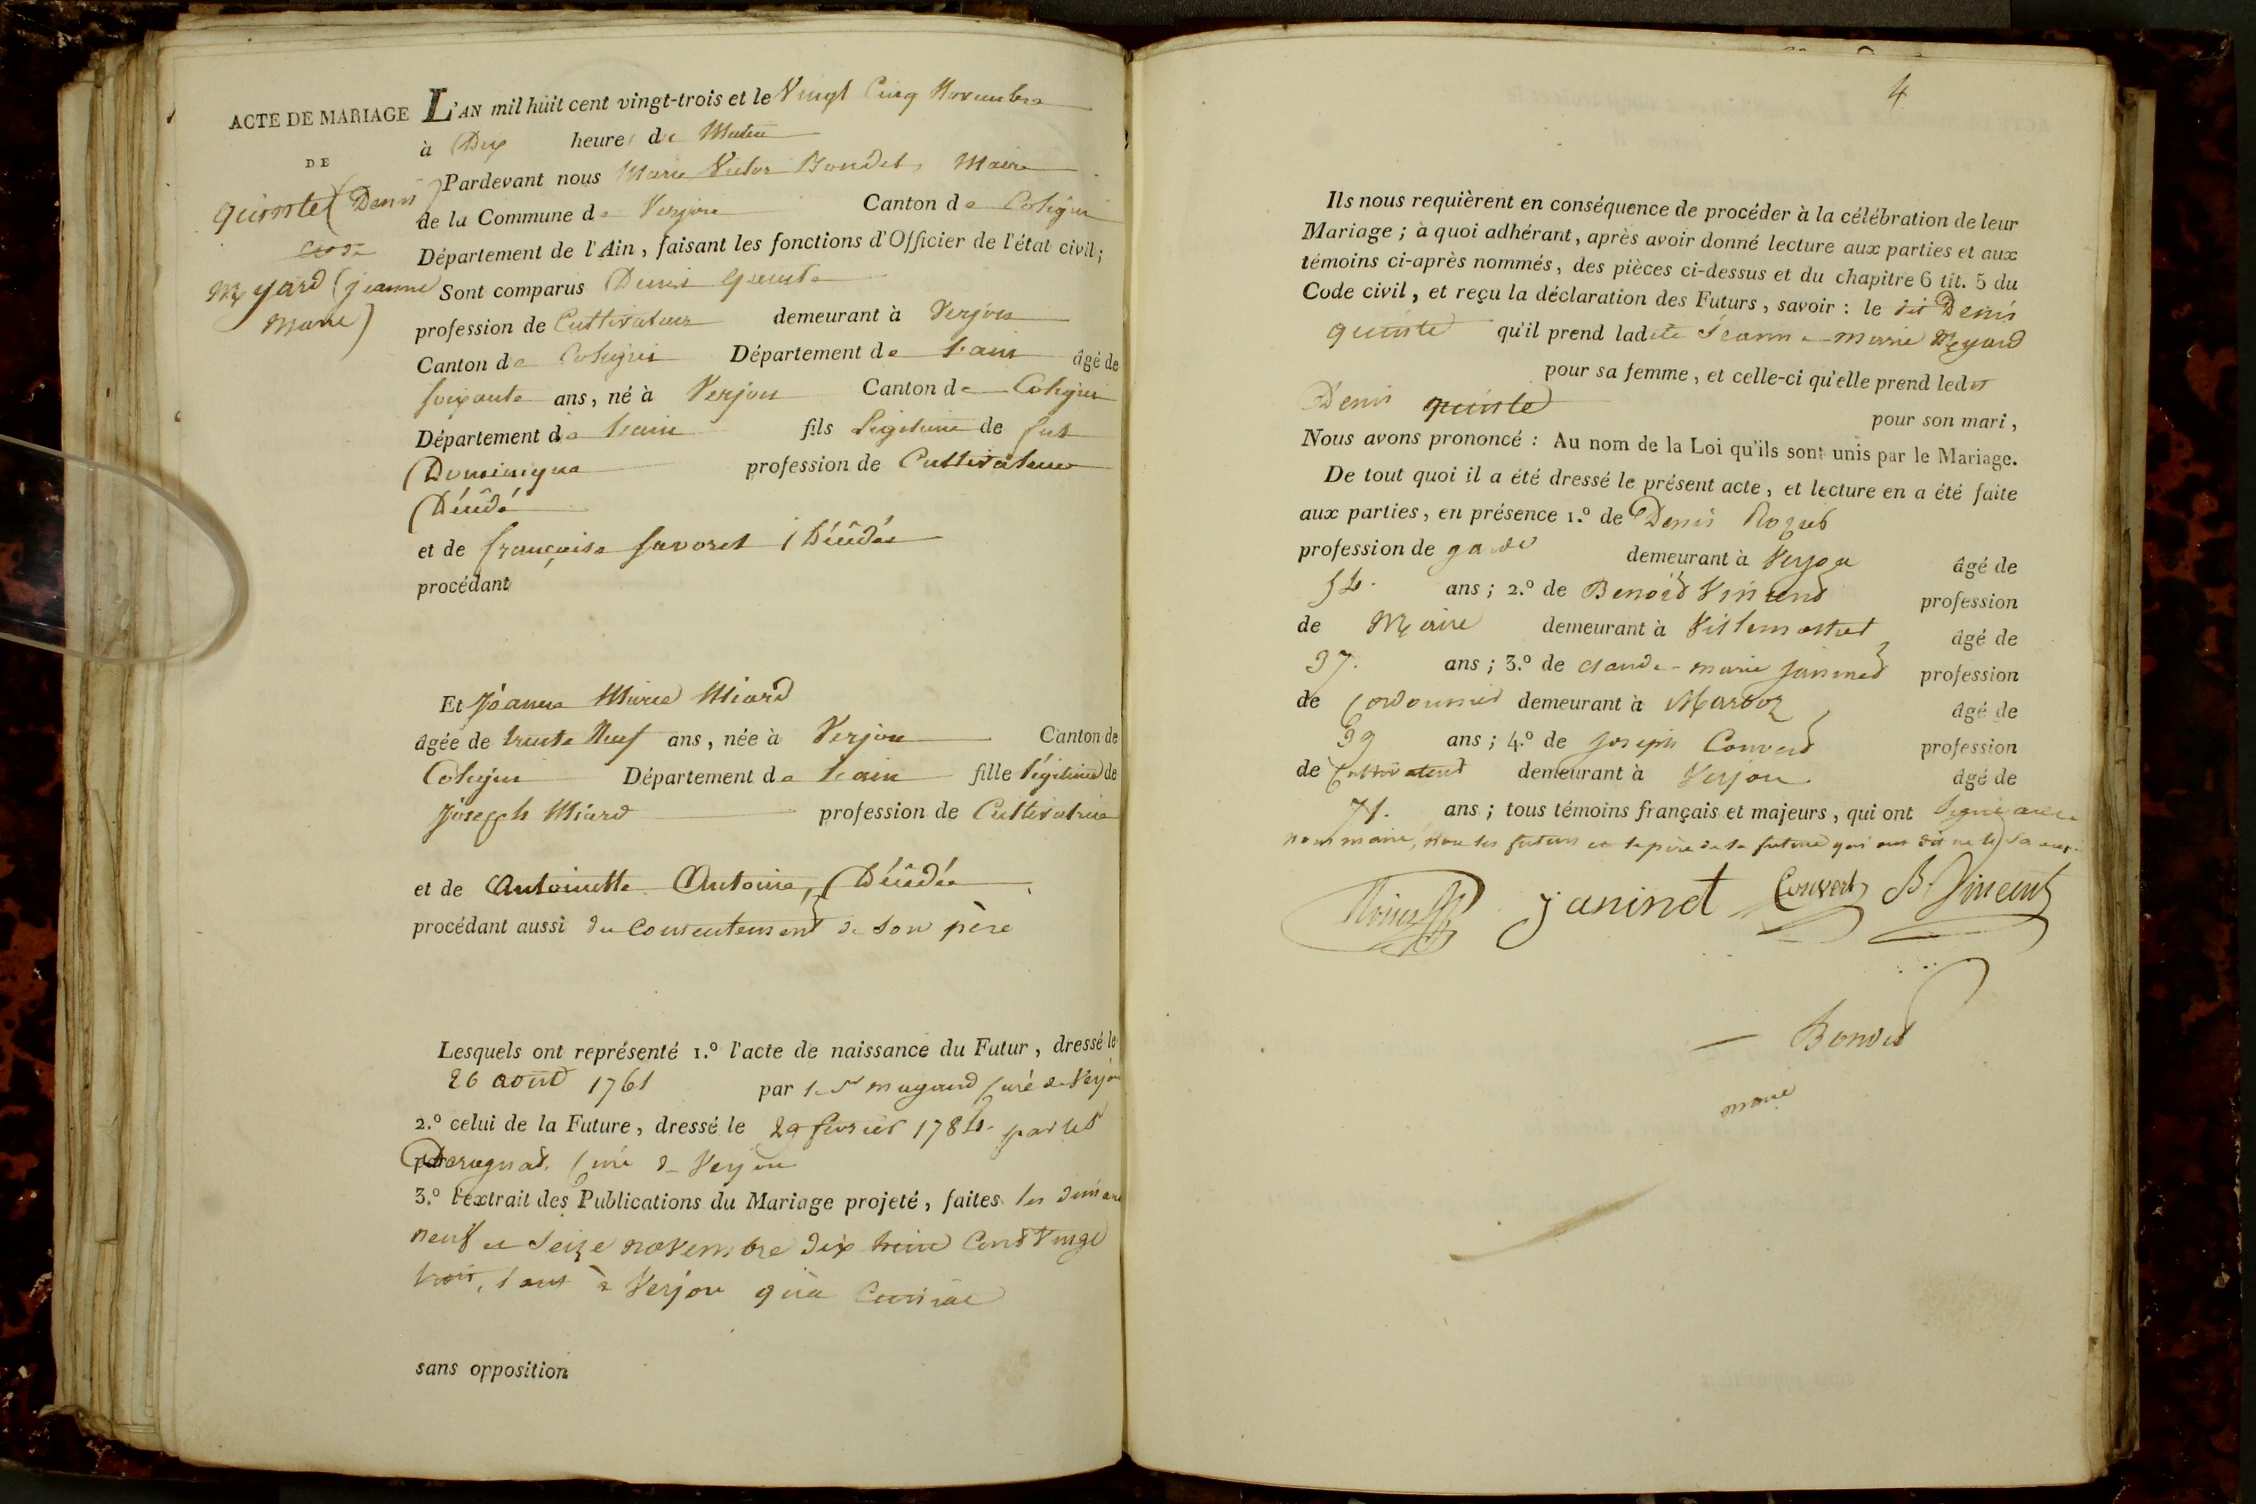 ACTE DE MARIAGE
DE
quinste (Denis)
Meyard (jeanne
Marie)
L'AN mil huit cent vingt-trois et le Vingt Cinq Novembre
à Dix heures du Matin
Pardevant nous Marie Victor Bondet, Maire
de la Commune de Verjon Canton de Coligni
Département de l'Ain, faisant les fonctions d'Officier de l'état civil;
Sont comparus Denis
profession de Cultivateur demeurant à Verjon
Canton de Coligni Département de l'ain âgé de
soixante ans, né à Verjon Canton de Coligni
Département de l'ain fils légitime de fut
Dominique profession de Cultivateur
Décédé
et de françoise favoret Décédée
procédant
Et Jeanne Marie Miard
âgée de trente Neuf ans, née à Verjon Canton de
Coligni Département de l'ain fille légitime de
Joseph Miard profession de Cultivatrice
et de Antoinette Antoine, Décédée
procédant aussi du Consentement de son père
Lesquels ont représenté 1.º l'acte de naissance du Futur, dressé le
26 aout 1761 par le Sr mugard Curé de Verjon
2.º celui de la Future, dressé le 29 fevrier 1784 par le Sr
par Curé de Verjon
3.º l'extrait des Publications du Mariage projeté, faites les
neuf et Seize novembre dix huit Cent Vingt
trois, tant à Verjon qu'à
sans opposition
4
Ils nous requièrent en conséquence de procéder à la célébration de leur
Mariage; à quoi adhérant, après avoir donné lecture aux parties et aux
témoins ci-après nommés, des pièces ci-dessus et du chapitre 6 tit. 5 du
Code civil, et reçu la déclaration des Futurs, savoir: le dit Denis
quinste qu'il prend ladite Jeanne-marie Meyard
pour sa femme, et celle-ci qu'elle prend ledit
Denis quinste pour son mari,
Nous avons prononcé: Au nom de la Loi qu'ils sont unis par le Mariage.
De tout quoi il a été dressé le présent acte, et lecture en a été faite
aux parties, en présence 1.º de Denis
profession de garde demeurant à Verjon âgé de
54. ans; 2.º de Benoid Vincend profession
de Maire demeurant à Villemottet âgé de
37. ans; 3.º de claude-marie janined profession
de Cordonnier demeurant à Marboz âgé de
39 ans; 4.º de joseph Converd profession
de Cultivateur demeurant à Verjon âgé de
71. ans; tous témoins français et majeurs, qui ont Signé avec
nous maire, non les futurs et le père de la future qui ont dit ne le Savoir
janinet Convert B. Vincent
Bondet
maire